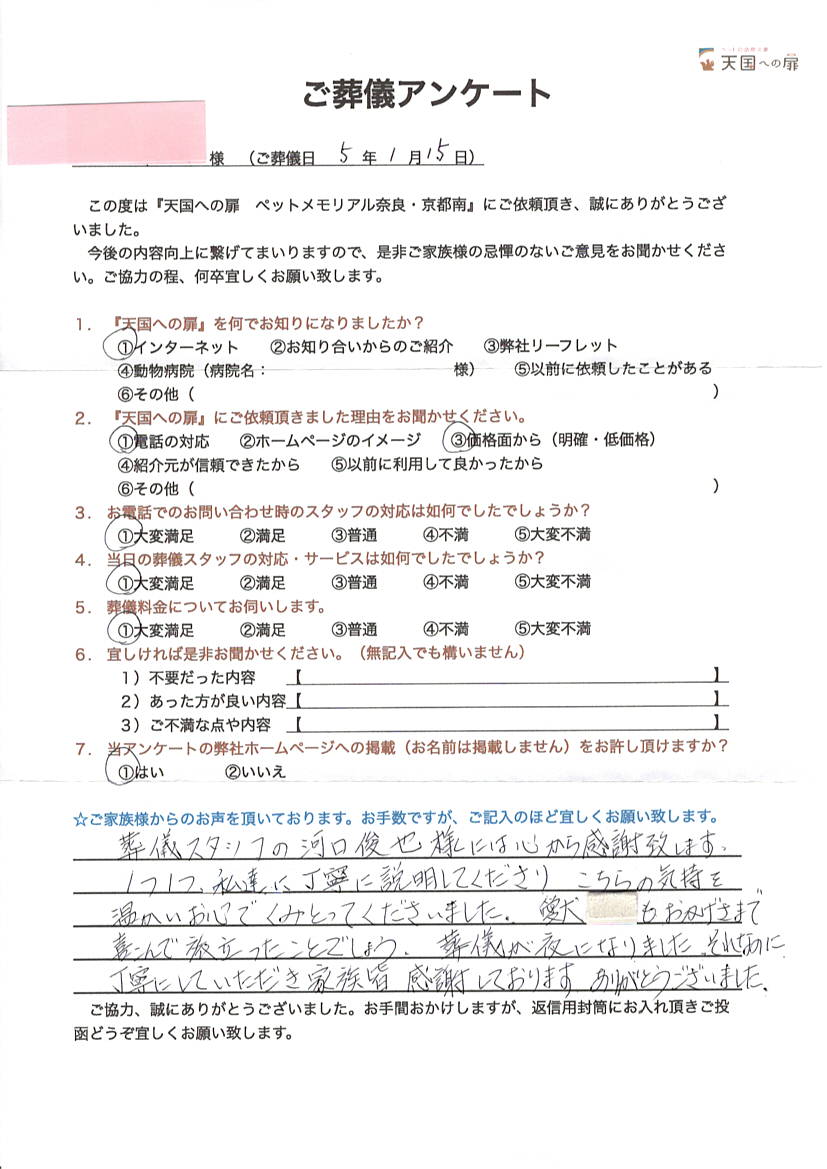 天国への扉
ご葬儀アンケート
様 （ご葬儀日 5 年 1 月 15 日）
この度は『天国への扉 ペットメモリアル奈良・京都南』にご依頼頂き、誠にありがとうござ
いました。
今後の内容向上に繋げてまいりますので、是非ご家族様の忌憚のないご意見をお聞かせくださ
い。ご協力の程、何卒宜しくお願い致します。
1． 『天国への扉』を何でお知りになりましたか？
①インターネット ②お知り合いからのご紹介 ③弊社リーフレット
④動物病院（病院名： 様） ⑤以前に依頼したことがある
⑥その他（ ）
2． 『天国への扉』にご依頼頂きました理由をお聞かせください。
①電話の対応 ②ホームページのイメージ ③価格面から（明確・低価格）
④紹介元が信頼できたから ⑤以前に利用して良かったから
⑥その他（ ）
3． お電話でのお問い合わせ時のスタッフの対応は如何でしたでしょうか？
①大変満足 ②満足 ③普通 ④不満 ⑤大変不満
4． 当日の葬儀スタッフの対応・サービスは如何でしたでしょうか？
①大変満足 ②満足 ③普通 ④不満 ⑤大変不満
5． 葬儀料金についてお伺いします。
①大変満足 ②満足 ③普通 ④不満 ⑤大変不満
6． 宜しければ是非お聞かせください。（無記入でも構いません）
1）不要だった内容 【 】
2）あった方が良い内容【 】
3）ご不満な点や内容 【 】
7． 当アンケートの弊社ホームページへの掲載（お名前は掲載しません）をお許し頂けますか？
①はい ②いいえ
☆ご家族様からのお声を頂いております。お手数ですが、ご記入のほど宜しくお願い致します。
葬儀スタッフの河口俊也様には心から感謝致します。
1つ1つ、私達に丁寧に説明してくださり こちらの気持を
温かいお心でくみとってくださいました。愛犬 もおかげさまで
喜こんで旅立ったことでしょう。葬儀が夜になりました。それなのに
丁寧にしていただき家族皆 感謝しております ありがとうございました。
ご協力、誠にありがとうございました。お手間おかけしますが、返信用封筒にお入れ頂きご投
函どうぞ宜しくお願い致します。